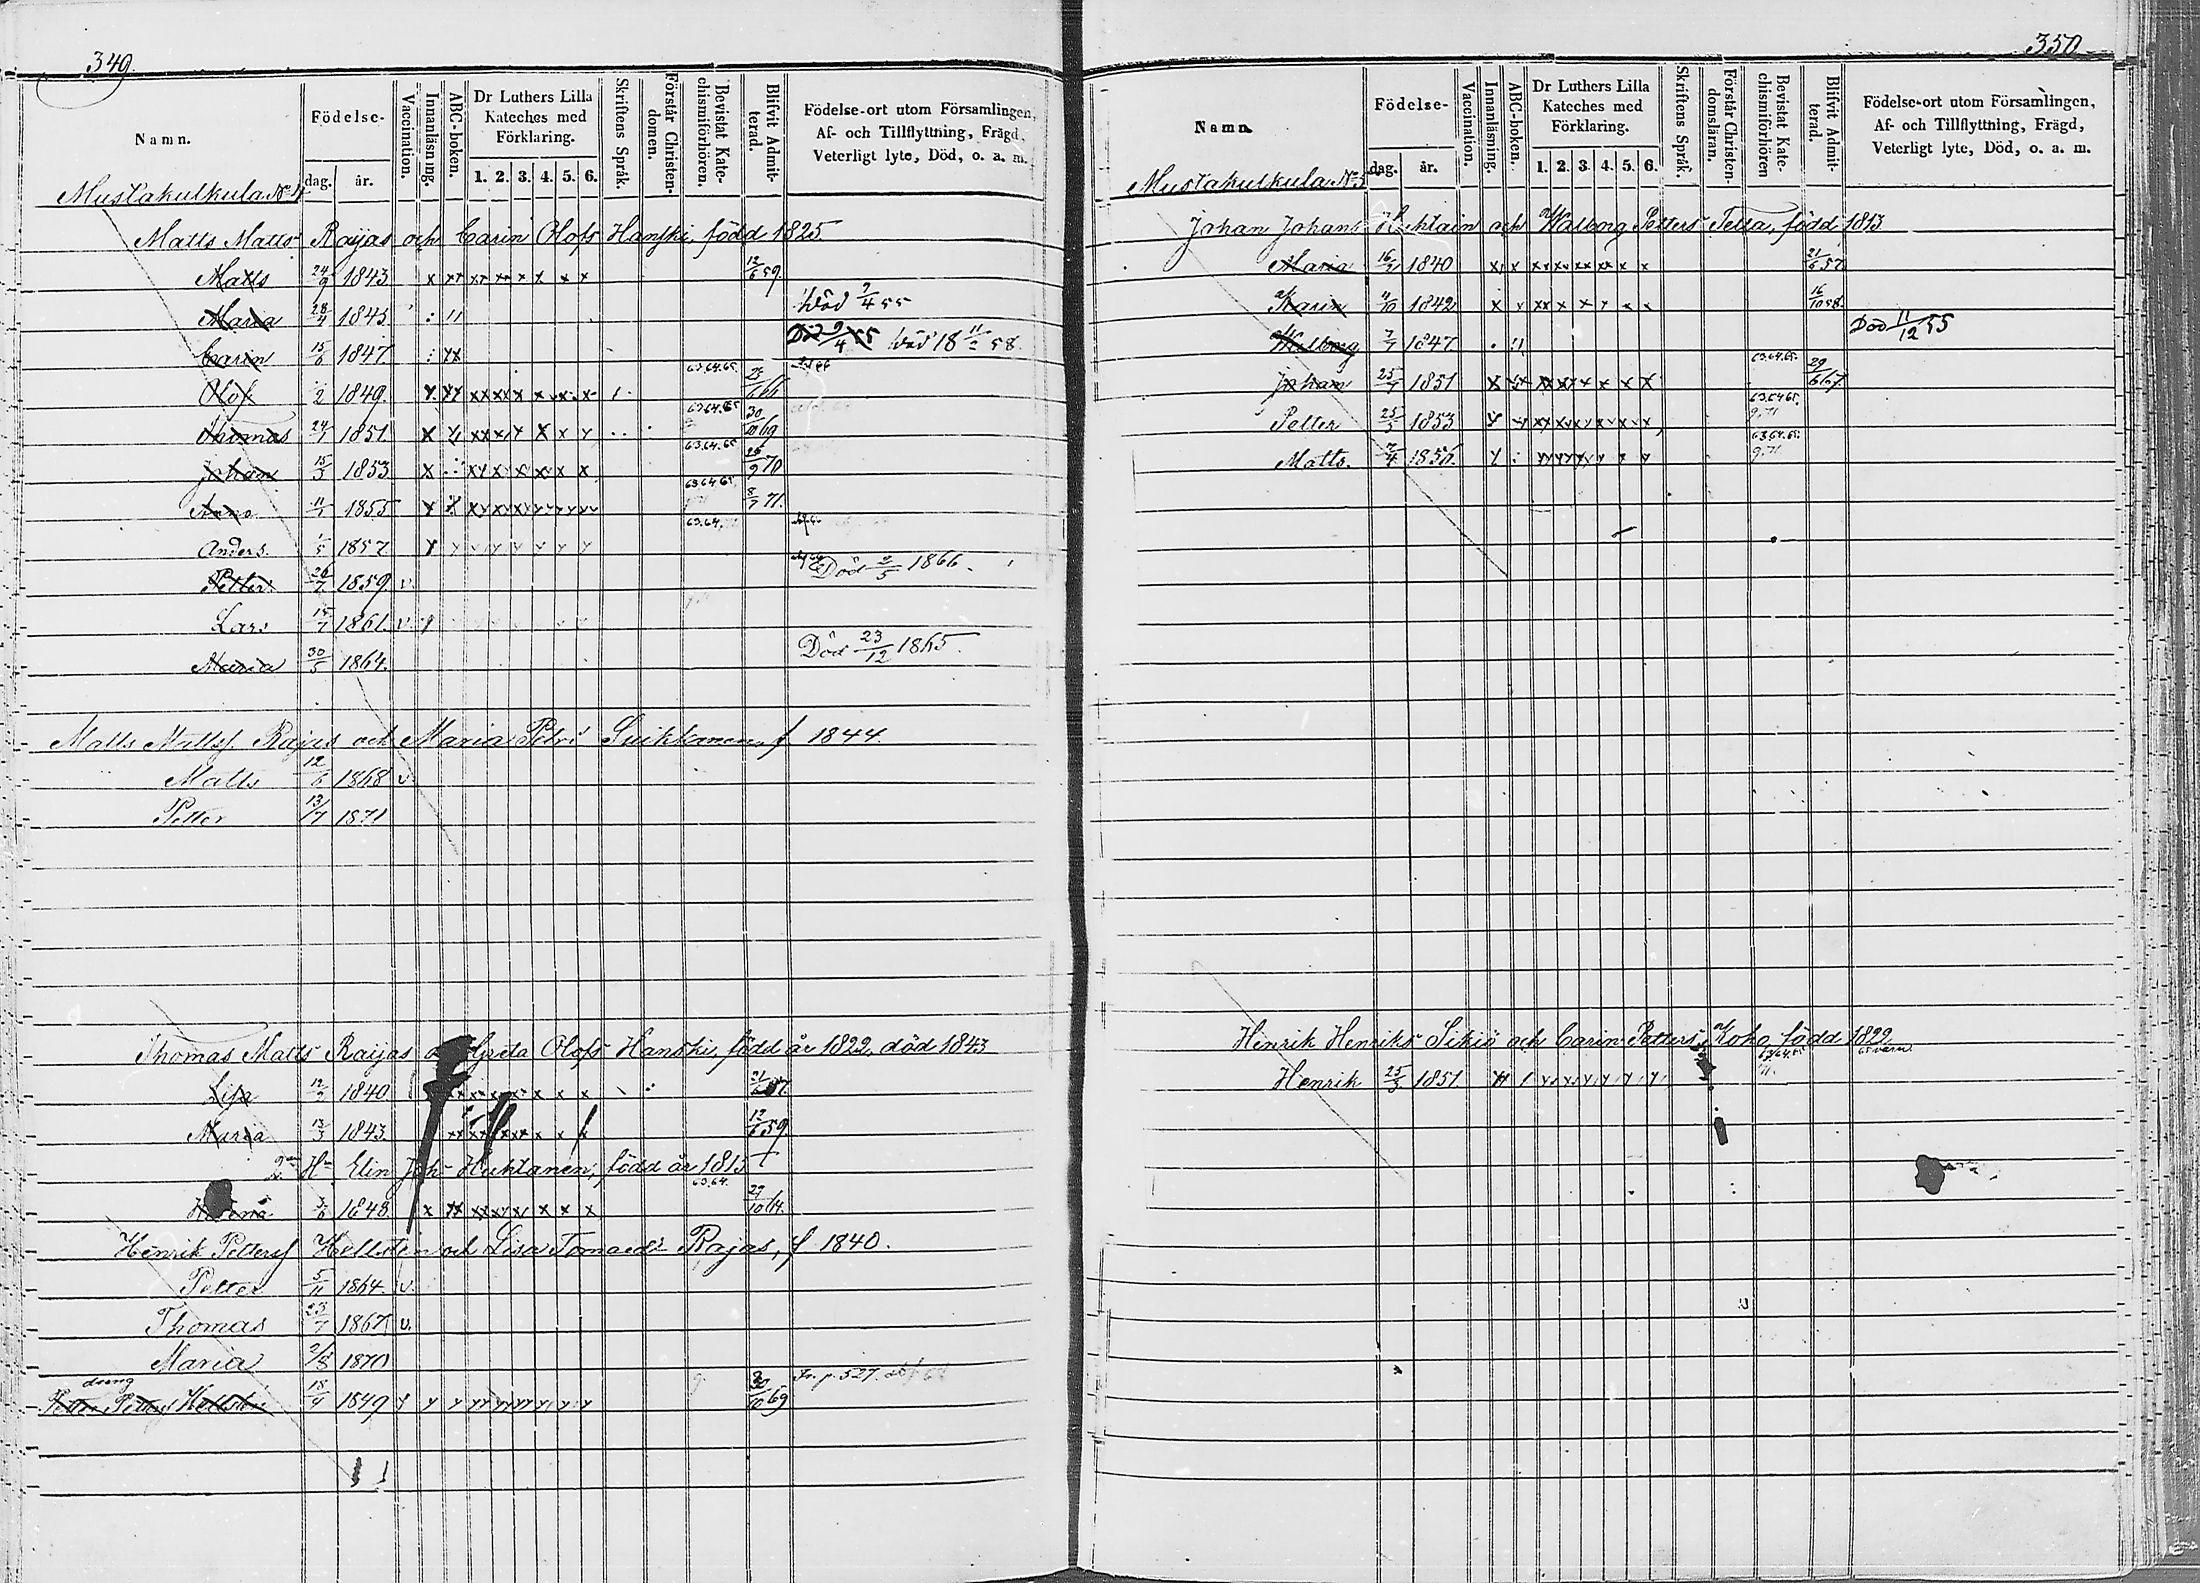 349.
Namn.
Födelse-
dag. år.
Vaccination.
Innanläsning.
ABC-boken.
Dr Luthers Lilla
Kateches med
Förklaring.
1. 2. 3. 4. 5. 6.
Skriftens Språk.
Förstår Christen-
domen.
Bevistat Kate-
chismiförhören.
Blifvit Admit-
terad.
Födelse-ort utom Församlingen,
Af- och Tillflyttning, Frägd,
Veterligt lyte, Död, o. a. m.
Mustakulkula No 4
Matts Matts Raijas och Carin Olofs Hanski, född 1825
Matts 24/9 1843 12/6 59.
Maria 28/4 1845 Död 9/4 55
Carin 15/6 1847 Död 9/4 55 död 18 58.
Olof 2 1849. 63.64.65.
Thomas 24/1 1851 63.64.65 30/10 69
Johan 15/3 1853 63.64.65 70
Anna 11/1 1855 63.64.65. 8/7 71.
Anders. 1/5 1857 63.64.
Petter 26/7 1859. v. Död 2/5 1866.
Lars 15/7 1861. v.
Maria 30/5 1864. Död 23/12 1865.
Matts Mattsf. Rajas och Maria Petrs f 1844.
Matts 12/6 1868 v.
Petter 13/7 1871
Thomas Matts Raijas Greta Olofs Hanski, född år 1822, död 1843
Lisa 12/2 1840 57.
Maria 13/3 1843. 12/6 59.
2 H Elin Joh Huhtanen, född år 1815
1848. 63.64. 29/10 64.
Henrik Pettersf Hellsten och Lisa Tomaed Rajas, f 1840.
Petter 5/11 1864. v.
Thomas 23/7 1867 v.
Maria 2/8 1870
dreng
Petter Petters Hellsten 18/9 1849 30/10 69 Fr. p. 527.
350
Namn.
Födelse-
dag. år.
Vaccination.
Innanläsning.
ABC-boken.
Dr Luthers Lilla
Kateches med
Förklaring.
1. 2. 3. 4. 5. 6.
Skriftens Språk.
Förstår Christen-
domsläran.
Bevistat Kate-
chismiförhören
Blifvit Admit-
terad.
Födelse-ort utom Församlingen,
Af- och Tillflyttning, Frägd,
Veterligt lyte, Död, o. a. m.
Mustakulkula No
Johan Johans och Walborg Petters Tella, född 1813
Maria 1840 21/6 57
Karin 11/10 1842 16/10 58.
Walborg 7/7 1847 Död 11/12 55
Johan 25/7 1851 63.64.65. 29/6 67.
Petter 25/5 1853 63.64.65.
Matts. 7/4 1856. 63.64.65.
Henrik Henriks Sikiö och Carin Petters Koho, född 1822
Henrik 25/3 1851